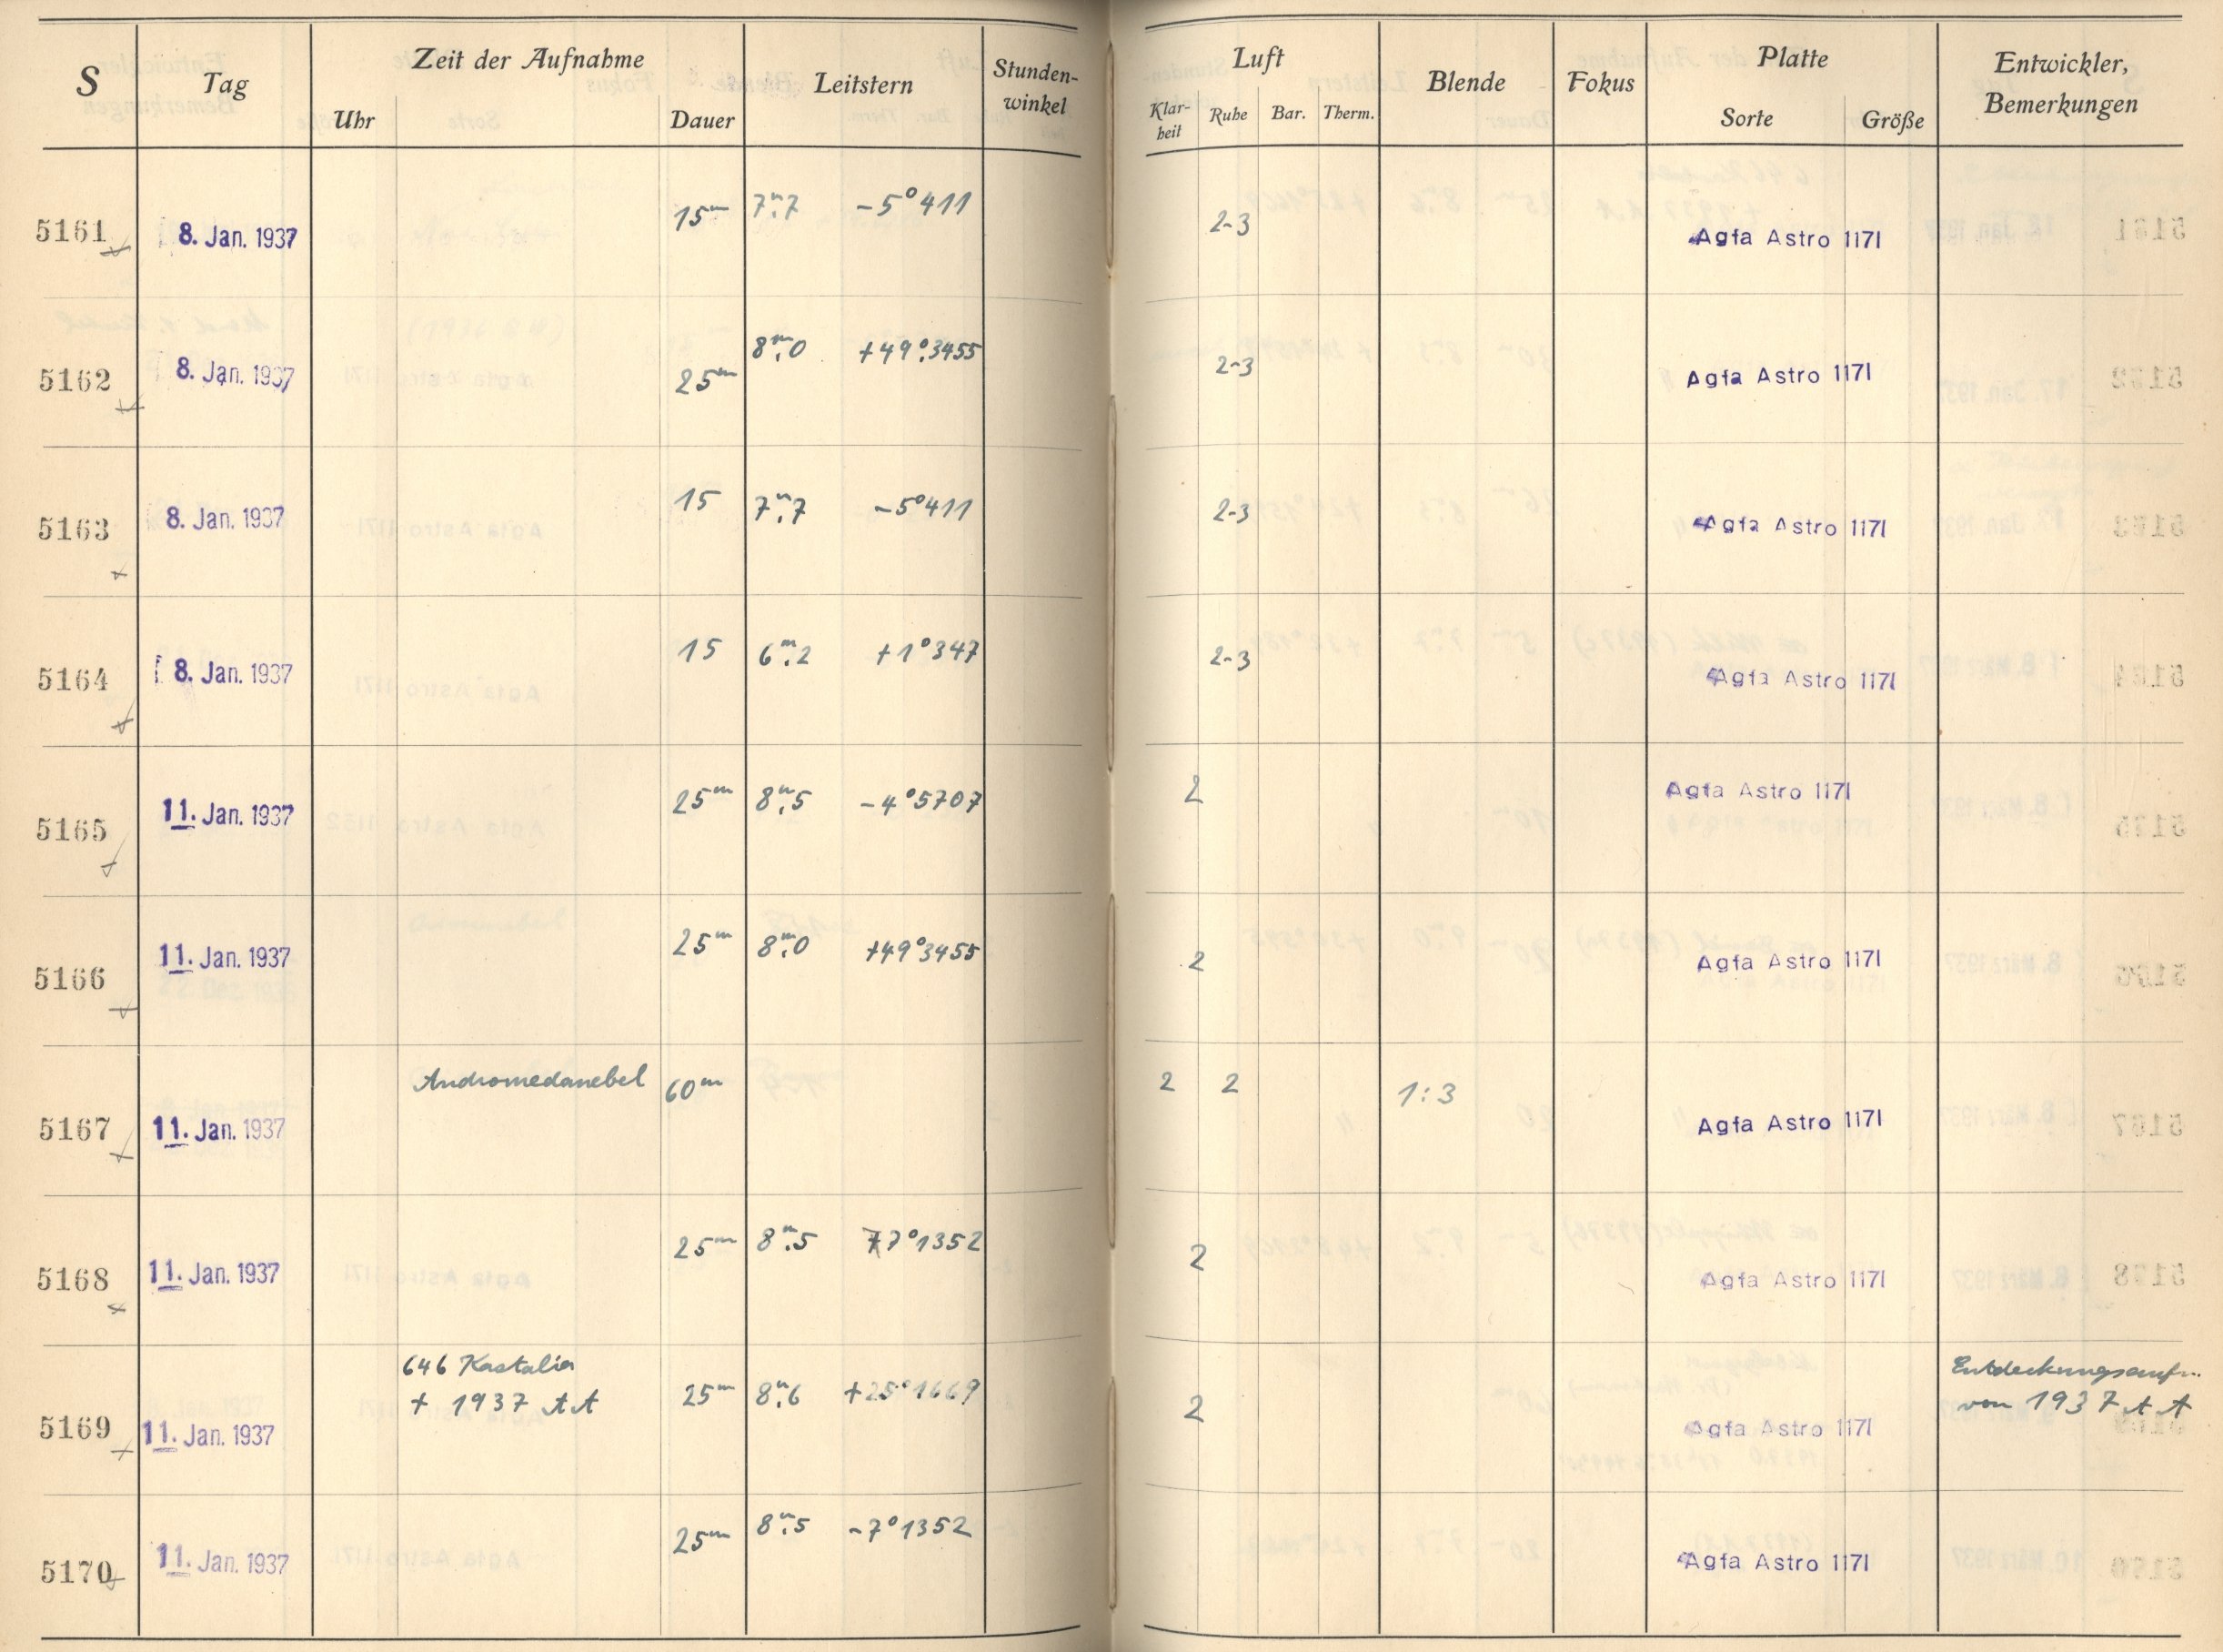 S Tag Zeit der Aufnahme Leitstern Stunden-winkel Luft Blende Fokus Platte Entwickler, Bemerkungen
Uhr Dauer Klar-heit Ruhe Bar. Therm. Sorte Größe
5161 8. Jan. 1937 15m 7m.7 -5°411 2-3 Agfa Astro 1171
5162 8. Jan. 1937 25m 8m.0 +49°.3455 2-3 Agfa Astro 1171
5163 8. Jan. 1937 15 7m.7 -5°411 2-3 Agfa Astro 1171
5164 8. Jan. 1937 15 6m.2 +1°347 2-3 Agfa Astro 1171
5165 11. Jan. 1937 25m 8m.5 -4°5707 2 Agfa Astro 1171
5166 11. Jan. 1937 25m 8m.0 +49°3455 2 Agfa Astro 1171
5167 11. Jan. 1937 Andromedanebel 60m 2 2 1:3 Agfa Astro 1171
5168 11. Jan. 1937 25m 8m.5 7°1352 2 Agfa Astro 1171
646 Kastalia
+ 1937 AA
5169 11. Jan. 1937 25m 8m.6 +25°1669 2 Agfa Astro 1171
Entdeckungsaufn.
von 1937 AA
5170 11. Jan. 1937 25m 8m.5 -7°1352 Agfa Astro 1171